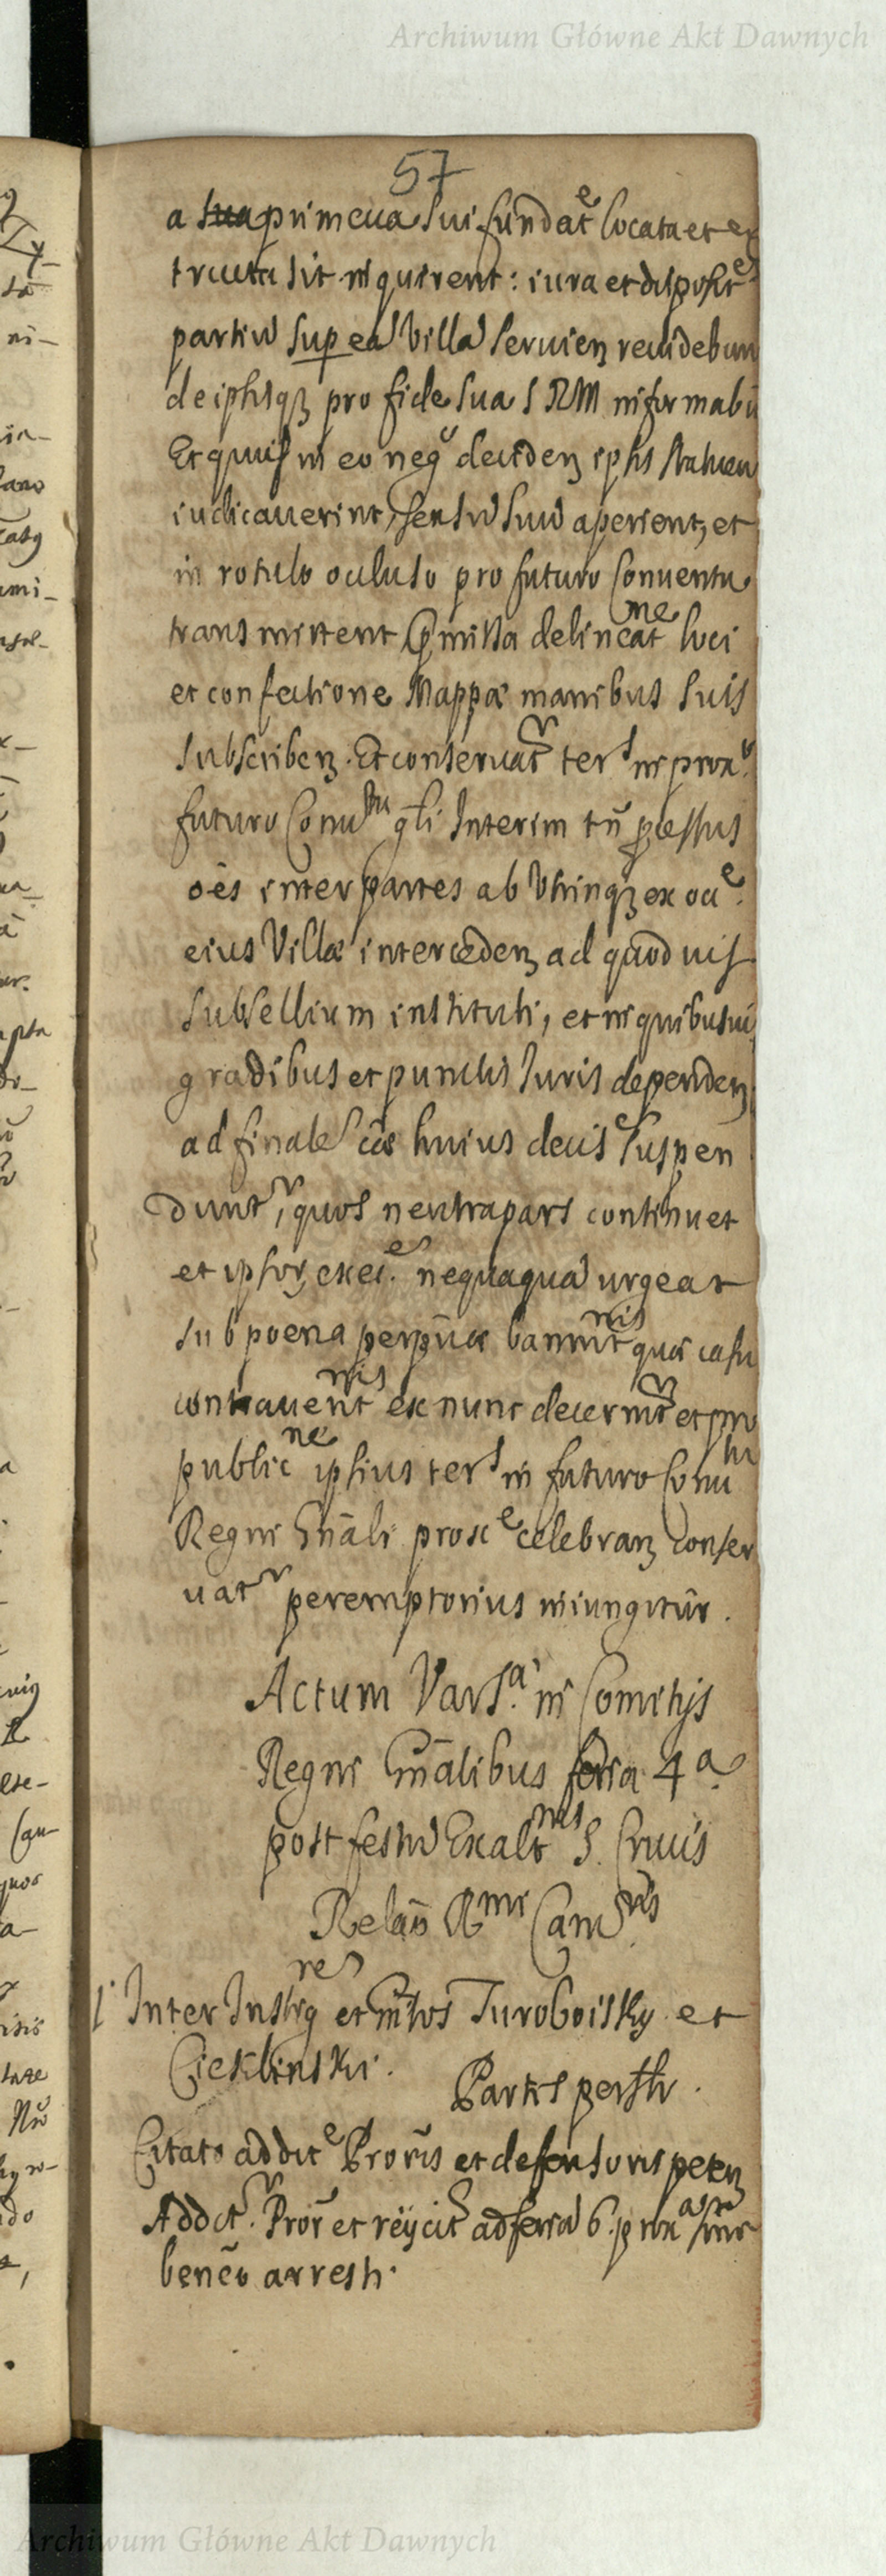 Archiwum Główne Akt Dawnych
57
a primeua sui fundat^e locata et ex
tructa sit inquirent: iura et disposit^e
partiũ sup eã Villã seruien revidebun
de ipsisq pro fide sua S R M informabũ
Et quiſ in eo neg^o deciden ipsis
iudicauerint, sensũ suũ aperient, et
in rotulo ocluso pro futuro Conuentu
transmittent pmissa delineat^ne loci
et confectione Mappæ manibus suis
subscriben. Et conseruat^r ter^s in prox^o
futuro Conu^tu głi Interim tñ pcessus
oẽs inter partes ab Utrinq ex occ^e.
eius Villæ interceden ad quoduiſ
subsellium instituti, et in quibusui
gradibus et punctis Iuris dependen
ad finalẽ huius decis^e suspen
dunt^r, quos neutra pars continuet
et ipsor exec^es. nequaquã urgeat
sub poena perpũæ bannit^nis quæ casu
contrauent^nis ex nunc decernit^r et pro
public^ne ipsius ter^s in futuro Conu^tu
Regni Gñali prox^e celebran conser
uat^r peremptorius iniungitur.
Actum Vars^a. in Comitijs
Regni Gñalibus feria 4^a.
post festũ Exalt^nis S. Crucis
Relaõ R^mi Canc^ris
Inter Instig^res et Gñosos Turoboisky et
Cieklinski.
Partis perstr.
Citato addit^e Proris et defensoris peten
Addit^r. Pror et reijcit^r ad feriã 6. prox^a
benẽo arresti.
Archiwum Główne Akt Dawnych